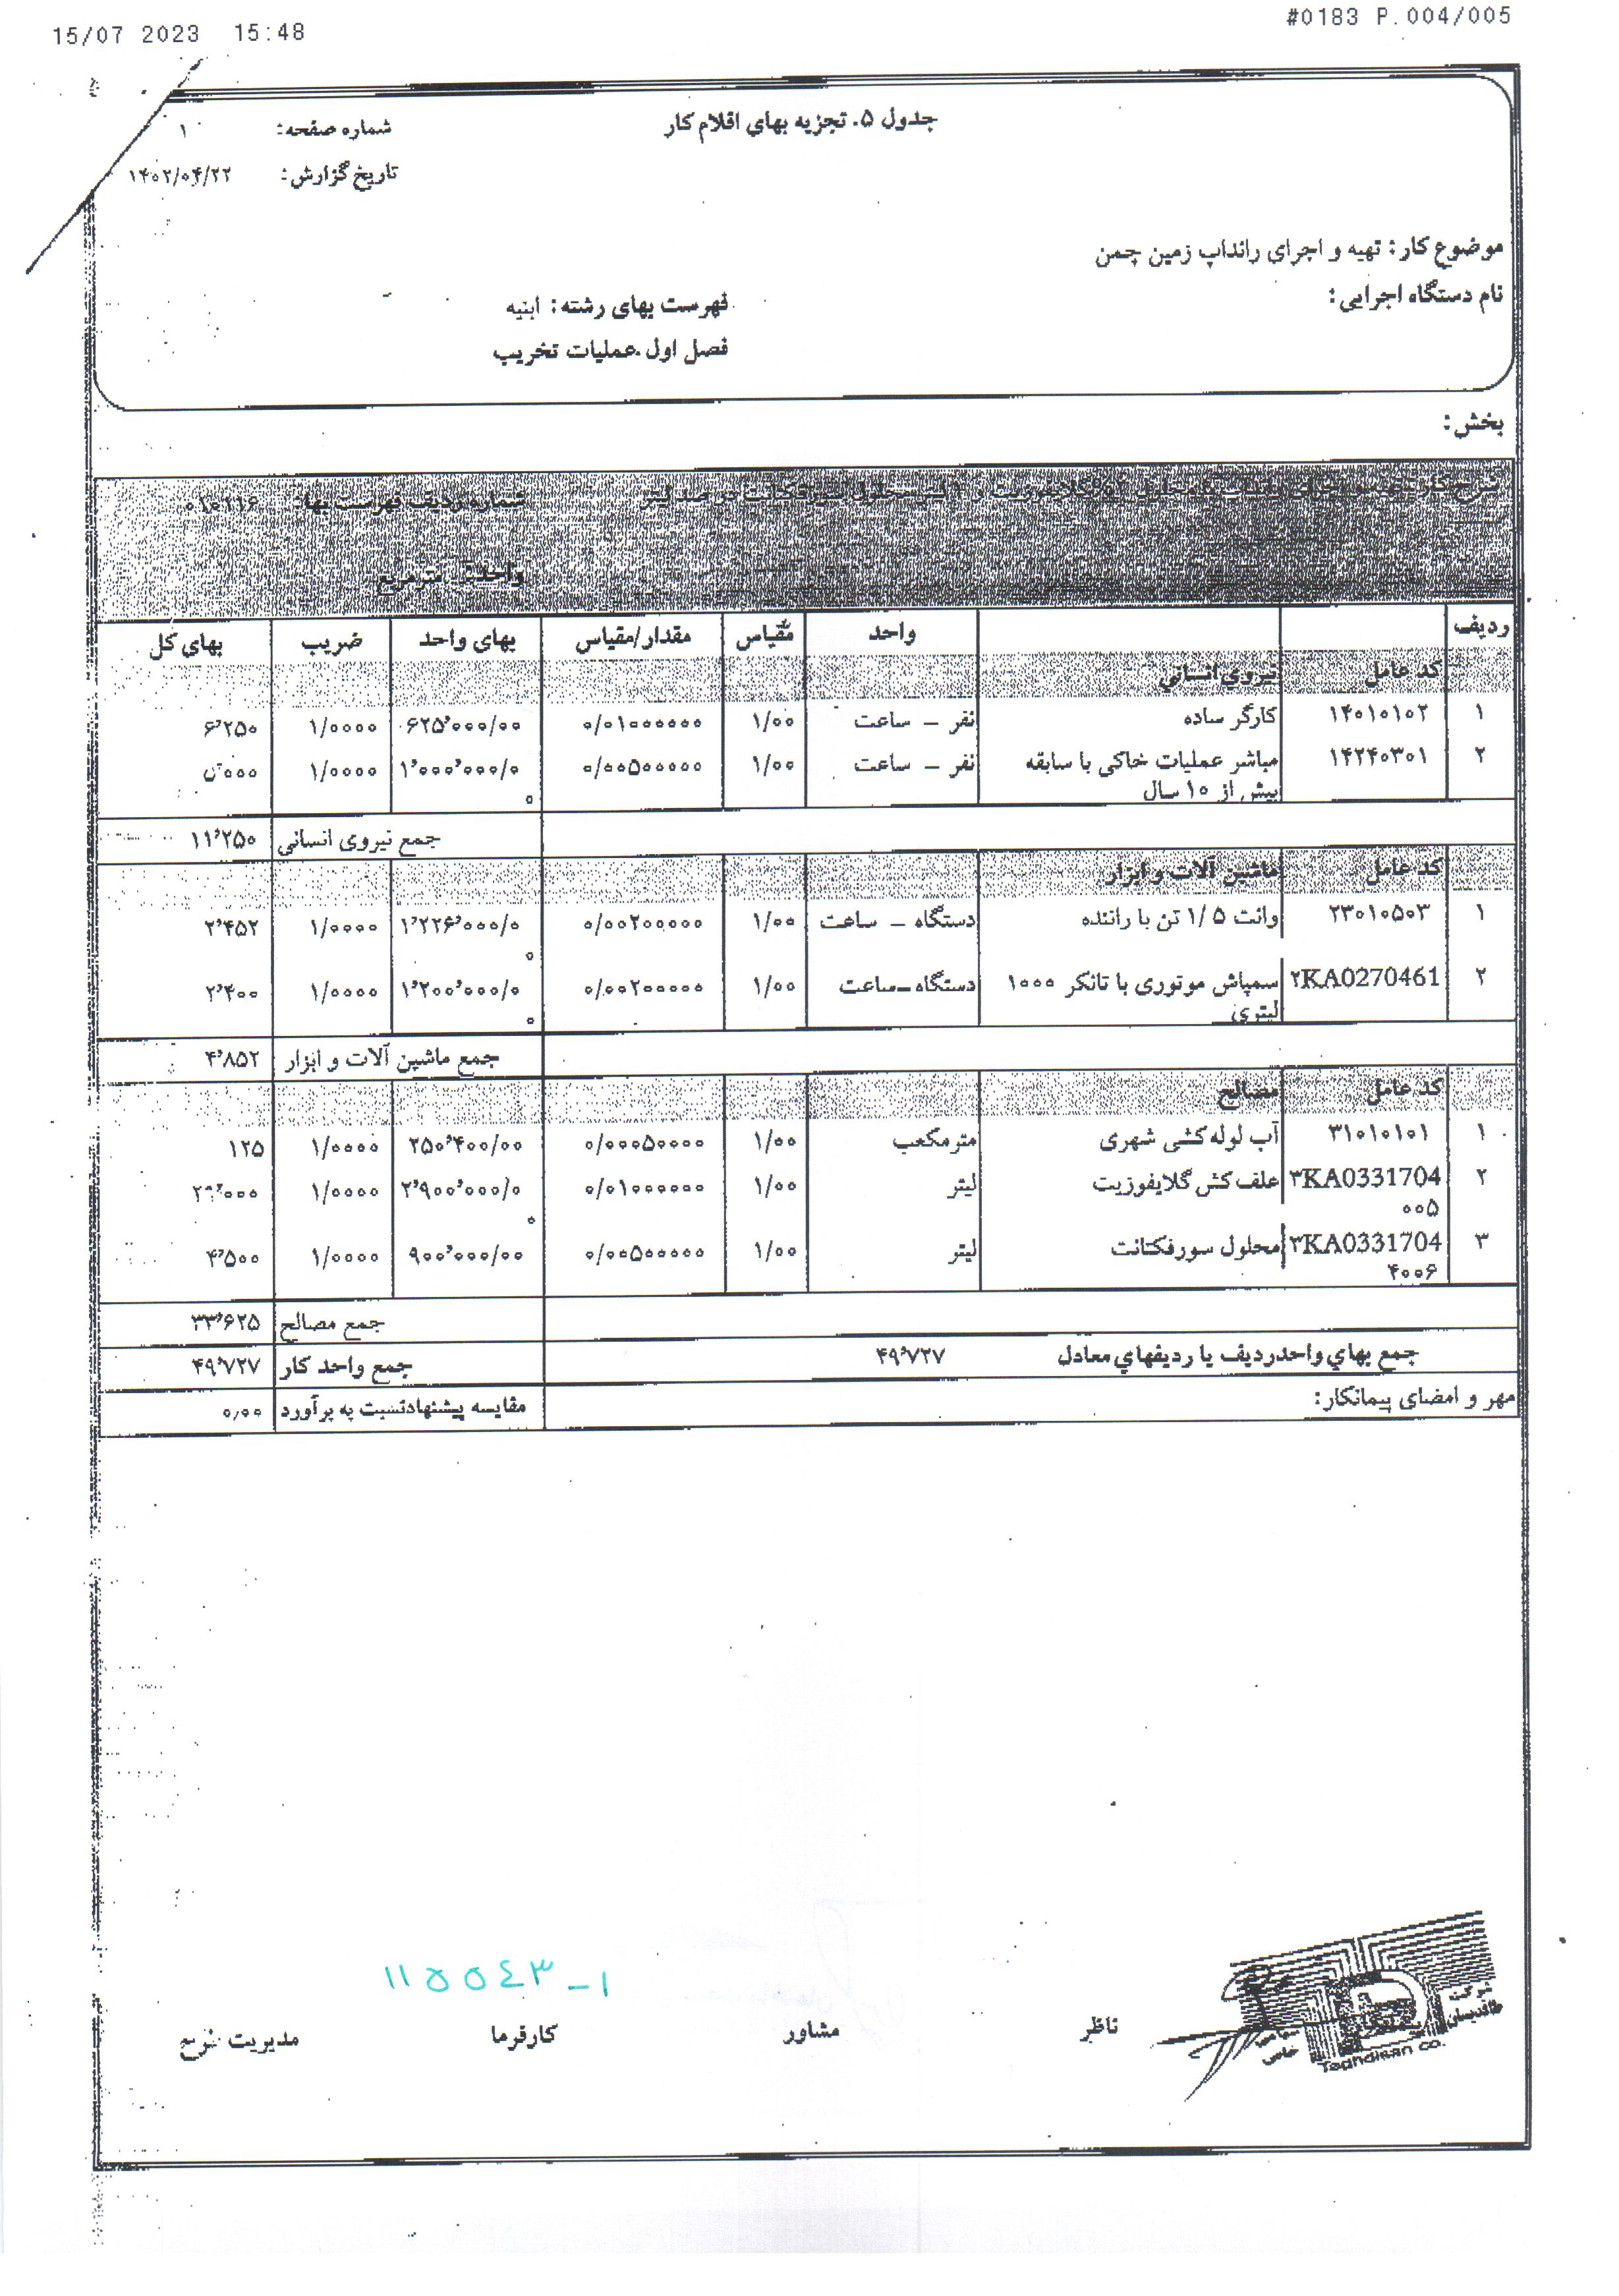 15/07 2023 15:48
#0183 P.004/005
جدول ۵. تجزیه بهای اقلام کار
شماره صفحه: ۱
تاریخ گزارش: ۱۴۰۲/۰۴/۲۲
موضوع کار: تهیه و اجرای رانداپ زمین چمن
نام دستگاه اجرایی:
فهرست بهای رشته: ابنیه
فصل اول .عملیات تخریب
بخش:
شماره ردیف فهرست بها: ۰۱۰۲۱۶
واحد: متر مربع
ردیف واحد مقیاس مقدار/مقیاس بهای واحد ضریب بهای کل
کد عامل نیروي انساني
۱ ۱۴۰۱۰۱۰۲ کارگر ساده نفر – ساعت ۱/۰۰ ۰/۰۱۰۰۰۰۰۰ ۶۲۵٬۰۰۰/۰۰ ۱/۰۰۰۰ ۶٬۲۵۰
۲ ۱۴۲۴۰۳۰۱ مباشر عملیات خاکی با سابقه نفر – ساعت ۱/۰۰ ۰/۰۰۵۰۰۰۰۰ ۱٬۰۰۰٬۰۰۰/۰ ۱/۰۰۰۰ ۵٬۰۰۰
بیش از ۱۰ سال ۰
جمع نیروی انسانی ۱۱٬۲۵۰
کد عامل ماشین آلات و ابزار
۱ ۲۳۰۱۰۵۰۳ وانت ۱/۵ تن با راننده دستگاه – ساعت ۱/۰۰ ۰/۰۰۲۰۰۰۰۰ ۱٬۲۲۶٬۰۰۰/۰ ۱/۰۰۰۰ ۲٬۴۵۲
۰
۲ ۲KA0270461 سمپاش موتوری با تانکر ۱۰۰۰ دستگاه–ساعت ۱/۰۰ ۰/۰۰۲۰۰۰۰۰ ۱٬۲۰۰٬۰۰۰/۰ ۱/۰۰۰۰ ۲٬۴۰۰
لیتری ۰
جمع ماشین آلات و ابزار ۴٬۸۵۲
کد عامل مصالح
۱ ۳۱۰۱۰۱۰۱ آب لوله کشی شهری مترمکعب ۱/۰۰ ۰/۰۰۰۵۰۰۰۰ ۲۵۰٬۴۰۰/۰۰ ۱/۰۰۰۰ ۱۲۵
۲ ۳KA0331704 علف کش گلایفوزیت لیتر ۱/۰۰ ۰/۰۱۰۰۰۰۰۰ ۲٬۹۰۰٬۰۰۰/۰ ۱/۰۰۰۰ ۲۹٬۰۰۰
۰۰۵ ۰
۳ ۳KA0331704 محلول سورفکتانت لیتر ۱/۰۰ ۰/۰۰۵۰۰۰۰۰ ۹۰۰٬۰۰۰/۰۰ ۱/۰۰۰۰ ۴٬۵۰۰
۴۰۰۶
جمع مصالح ۳۳٬۶۲۵
جمع بهاي واحدردیف یا ردیفهاي معادل ۴۹٬۷۲۷ جمع واحد کار ۴۹٬۷۲۷
مهر و امضای پیمانکار: مقایسه پیشنهادنسبت به برآورد ۰٫۰۰
۱۱۵۵۴۳-۱
شرکت
طاقدیسان
سهامی
خاص
Taghdisan co.
ناظر مشاور کارفرما مدیریت طرح